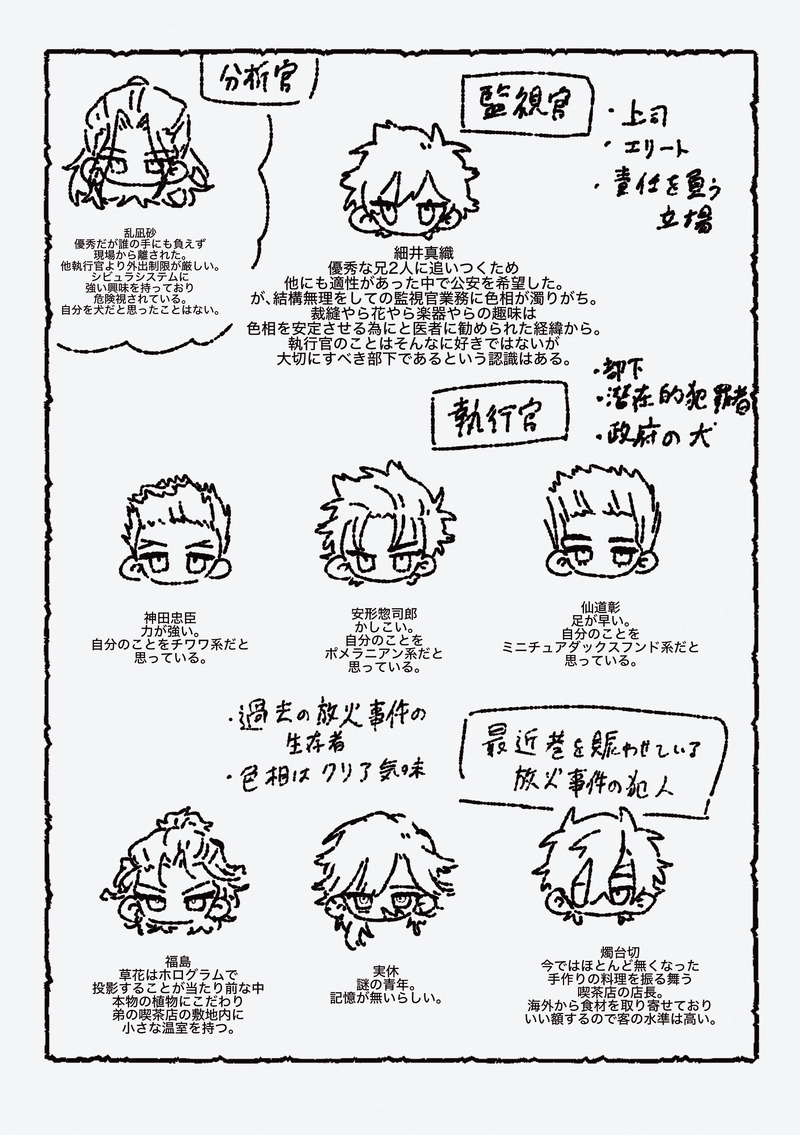 分析官
乱凪砂
優秀だが誰の手にも負えず
現場から離された。
他執行官より外出制限が厳しい。
シビュラシステムに
強い興味を持っており
危険視されている。
自分を犬だと思ったことはない。
監視官
・上司
・エリート
・責任を負う
立場
細井真織
優秀な兄2人に追いつくため
他にも適性があった中で公安を希望した。
が、結構無理をしての監視官業務に色相が濁りがち。
裁縫やら花やら楽器やらの趣味は
色相を安定させる為にと医者に勧められた経緯から。
執行官のことはそんなに好きではないが
大切にすべき部下であるという認識はある。
執行官
・部下
・潜在的犯罪者
・政府の犬
神田忠臣
力が強い。
自分のことをチワワ系だと
思っている。
安形惣司郎
かしこい。
自分のことを
ポメラニアン系だと
思っている。
仙道彰
足が早い。
自分のことを
ミニチュアダックスフンド系だと
思っている。
・過去の放火事件の
生存者
・色相はクリア気味
最近巷を賑わせている
放火事件の犯人
福島
草花はホログラムで
投影することが当たり前な中
本物の植物にこだわり
弟の喫茶店の敷地内に
小さな温室を持つ。
実休
謎の青年。
記憶が無いらしい。
燭台切
今ではほとんど無くなった
手作りの料理を振る舞う
喫茶店の店長。
海外から食材を取り寄せており
いい額するので客の水準は高い。